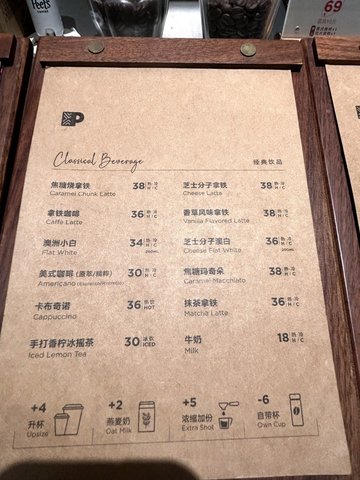 Peet's
69
P
Classical Beverage 经典饮品
焦糖烧拿铁 38 热/冷 H/C
Caramel Chunk Latte
芝士分子拿铁 38 热/冷 H/C
Cheese Latte
拿铁咖啡 36 热/冷 H/C
Caffe Latte
香草风味拿铁 38 热/冷 H/C
Vanilla Flavored Latte
澳洲小白 34 热/冷 H/C
Flat White
芝士分子澳白 36 热/冷 H/C
Cheese Flat White
美式咖啡 30 热/冷 H/C
Americano
焦糖玛奇朵 38 热/冷 H/C
Caramel Macchiato
卡布奇诺 36 热饮 HOT
Cappuccino
抹茶拿铁 36 热/冷 H/C
Matcha Latte
手打香柠冰摇茶 30 冰饮 ICED
Iced Lemon Tea
牛奶 18 热/冷 H/C
Milk
+4
升杯
Upsize
+2
燕麦奶
Oat Milk
+5
浓缩加份
Extra Shot
-6
自带杯
Own Cup